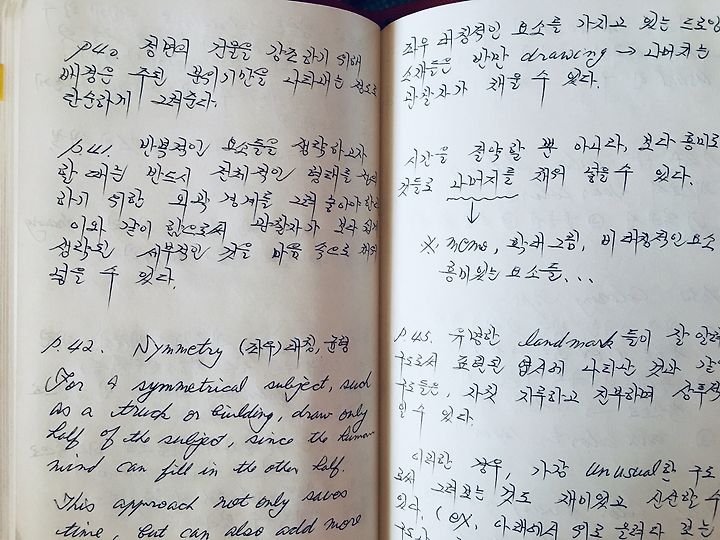 p.40. 정면의 건물을 강조하기 위해
배경은 주된 분위기만을 나타내는 정도로
단순하게 그려준다.
p.41. 반복적인 요소들을 생략하고자
할 때는 반드시 전체적인 형태를
하기 위한 외곽 경계를 그려 놓아야 한다
이와 같이 함으로써 관찰자가 보다 쉽게
생략된 세부적인 것을 마음 속으로 채워
넣을 수 있다.
p.42. Symmetry (좌우)대칭, 균형
For a symmetrical subject, such
as a truck or building, draw only
half of the subject, since the human
mind can fill in the other half.
This approach not only saves
time, but can also add more
좌우 대칭적인 요소를 가지고 있는 드로잉
소재들은 반만 drawing → 나머지는
관찰자가 채울 수 있다.
시간을 절약할 뿐 아니라, 보다 흥미로
것들로 나머지를 채워 넣을 수 있다.
↓
※ memo, 확대그림, 비대칭적인 요소
흥미있는 요소들...
p.45. 유명한 landmark들이 잘 알려
구도로서 표현된 엽서에 나타난 것과 같
구도들은, 자칫 지루하고 진부하며 상투적
일 수 있다.
이러한 경우, 가장 unusual한 구도
로서 그려보는 것도 재미있고 신선할 수
있다. (ex, 아래에서 위로 올려다 보는